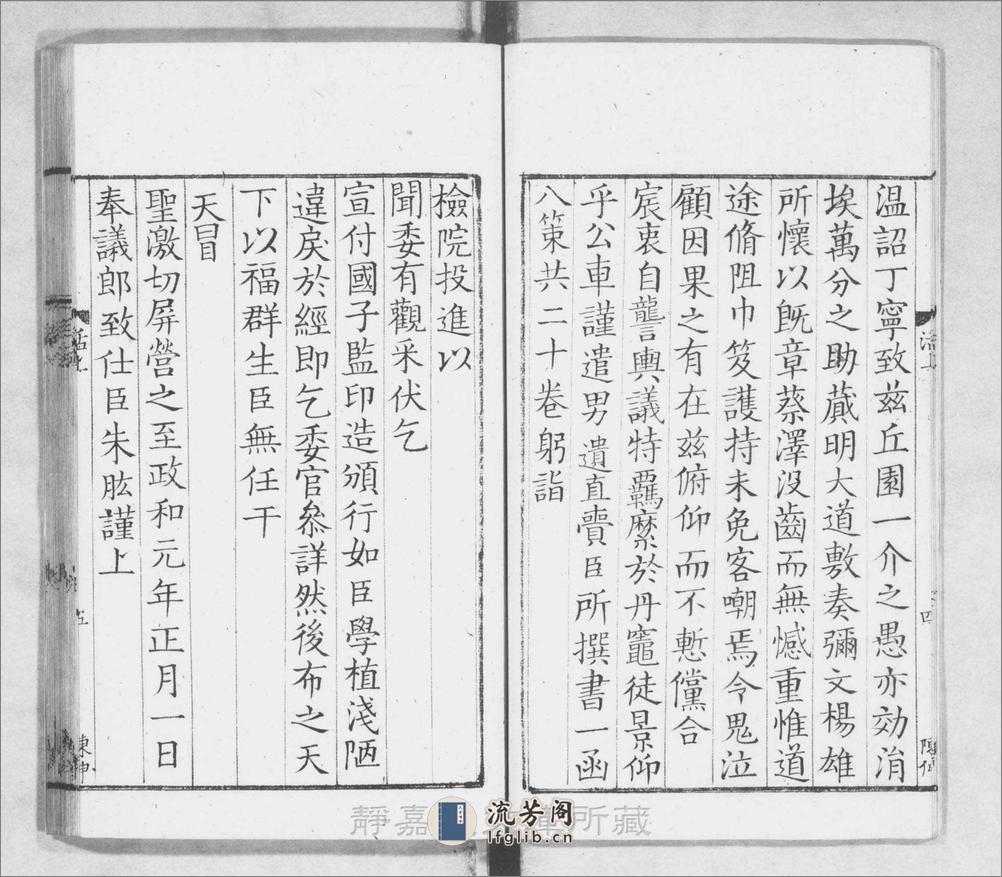 温詔丁寧致茲丘園一介之愚亦効涓
埃萬分之助蕆明大道敷奏彌文楊雄
所懷以既章蔡澤沒齒而無憾重惟道
途脩阻巾笈護持未免客嘲焉令鬼泣
顧因果之有在茲俯仰而不慙儻合
宸衷自讋輿議特羈縻於丹竈徒景仰
乎公車謹遣男遺直賫臣所撰書一函
八策共二十卷躬詣
檢院投進以
聞委有觀采伏乞
宣付國子監印造頒行如臣學植淺陋
違戾於經即乞委官叅詳然後布之天
下以福群生臣無任干
天冒
聖激切屏營之至政和元年正月一日
奉議郎致仕臣朱肱謹上
活上
四
活上
五
靜嘉
所藏
流芳阁
lfglib.cn